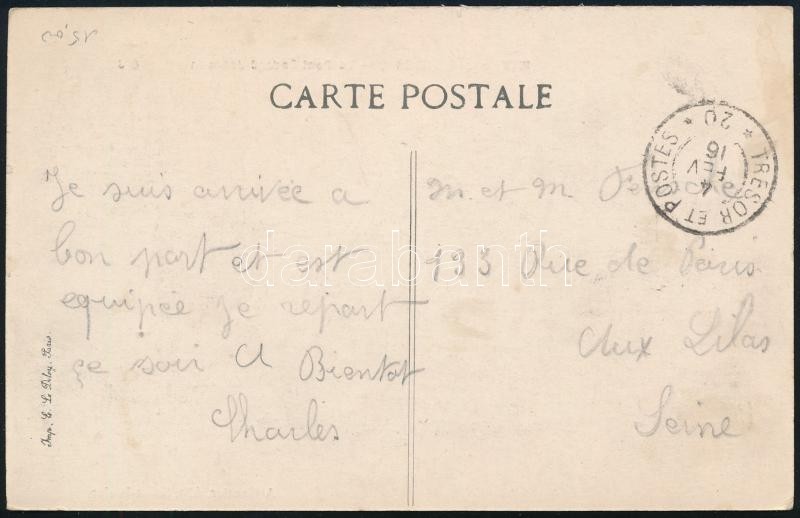 15,00
CARTE POSTALE
* TRESOR ET POSTES *
20
Je suis arrivée a
bon port et est
equipée je repart
ce soir A Bientot
Charles
M. et M.
133 Rue de Paris
Aux Lilas
Seine
Imp. E. Le Deley, Paris.
darabanth